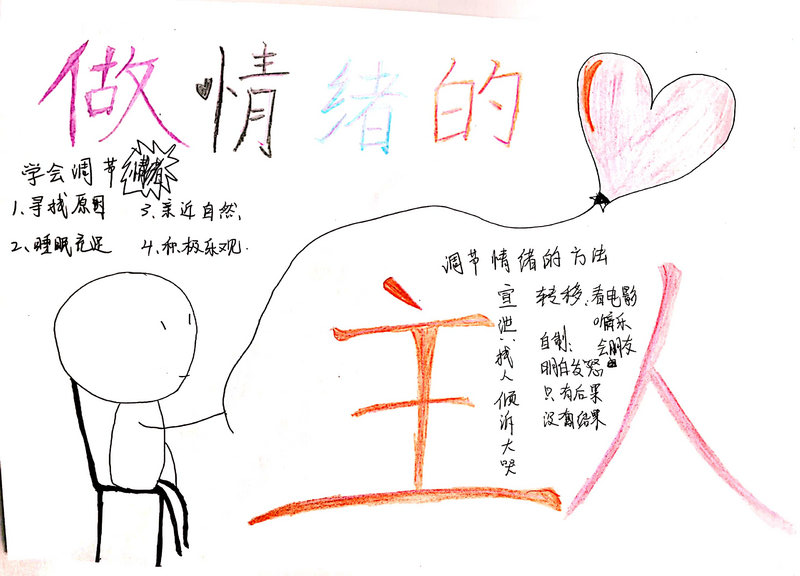 做情绪的
学会调节情绪
1、寻找原因 3、亲近自然、
2、睡眠充足 4、积极乐观.
主人
调节情绪的方法
宣泄:找人倾诉大哭
转移:看电影
听音乐
会朋友
自制:
明白发怒
只有后果
没有结果